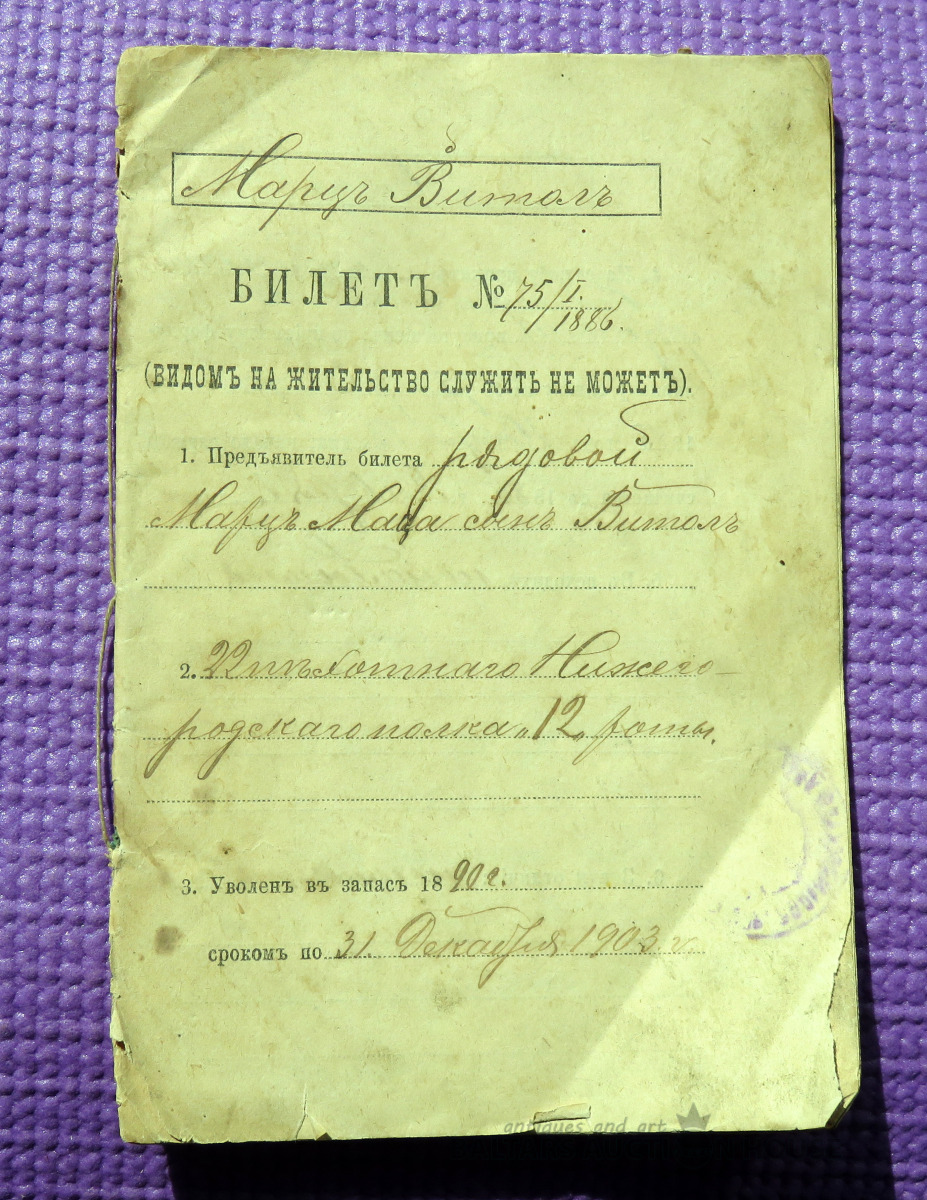 Марцъ Витолъ
БИЛЕТЪ № 75/I. 1886.
(ВИДОМЪ НА ЖИТЕЛЬСТВО СЛУЖИТЬ НЕ МОЖЕТЪ).
1. Предъявитель билета рядовой
Марцъ Маца сынъ Витолъ
2. 22 пѣхотнаго Нижего-
родскаго полка „12„ роты.
3. Уволенъ въ запасъ 1890 г.
срокомъ по 31 Декабря 1903 г.
antiques and art